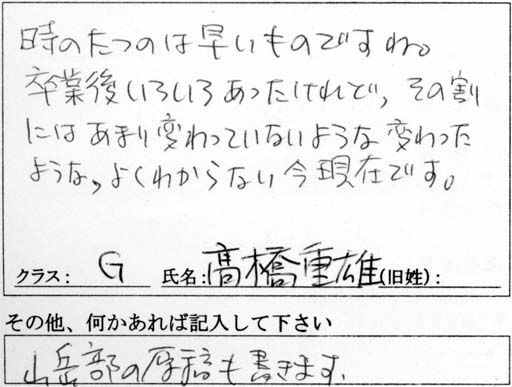 時のたつのは早いものですね。
卒業後いろいろあったけれど、その割
にはあまり変わっていないような変わった
ような、よくわからない今現在です。
クラス： G 氏名：髙橋重雄(旧姓)：
その他、何かあれば記入して下さい
山岳部の原稿も書きます。